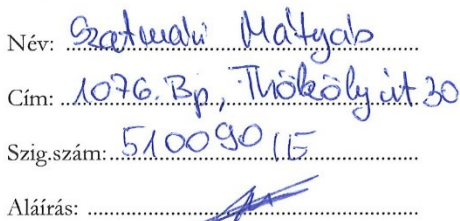 Név: Szatmári Mátyás
Cím: 1076. Bp, Thököly út 30
Szig.szám: 510090 IE
Aláírás: